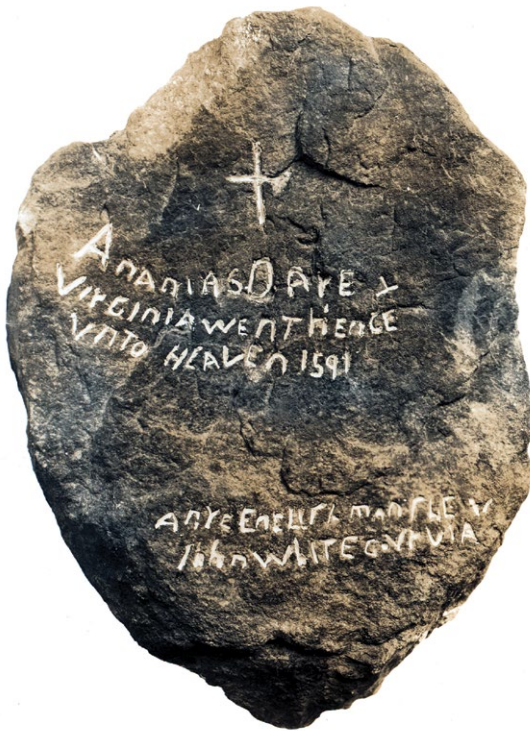 ANANIAS DARE &
VIRGINIA WENT HENCE
VNTO HEAVEN 1591
ANYE ENGLISHMAN SHEW
John WhITE GOVR VIA